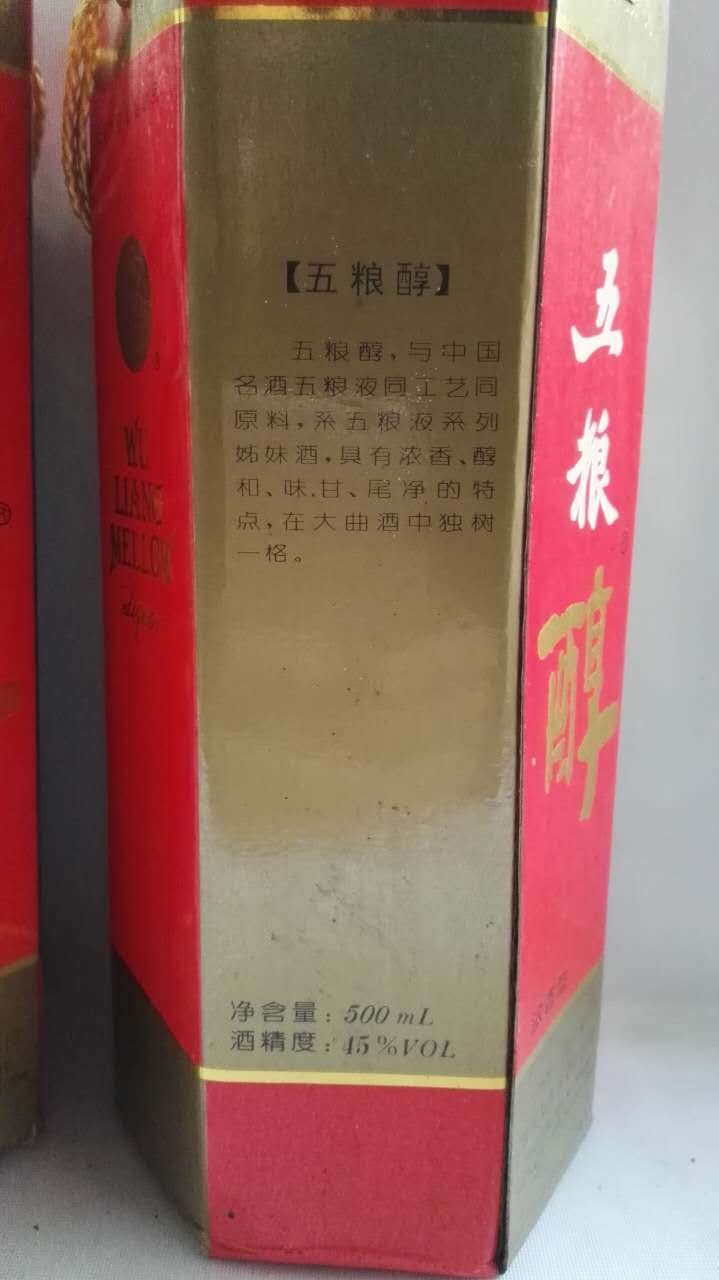 【五粮醇】
五粮醇,与中国
名酒五粮液同工艺同
原料,系五粮液系列
姊妹酒,具有浓香、醇
和、味甘、尾净的特
点,在大曲酒中独树
一格。
净含量:500 mL
酒精度:45%VOL
WU
LIANG
MELLOW
®
五粮醇
®